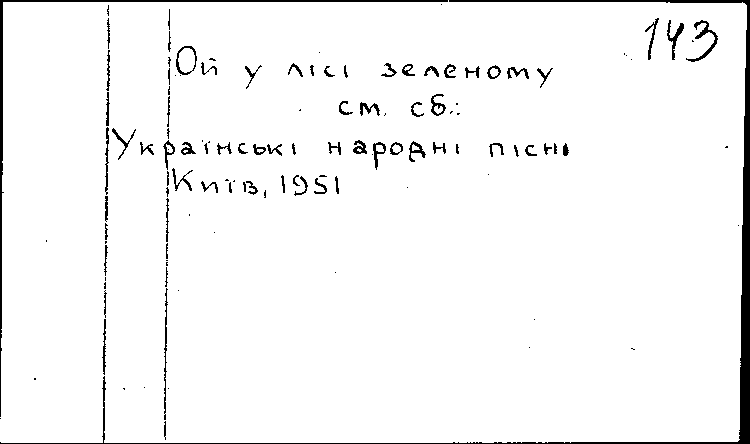 143
Ой у лісі зеленому
см. сб.:
Українські народні пісні
Київ, 1951